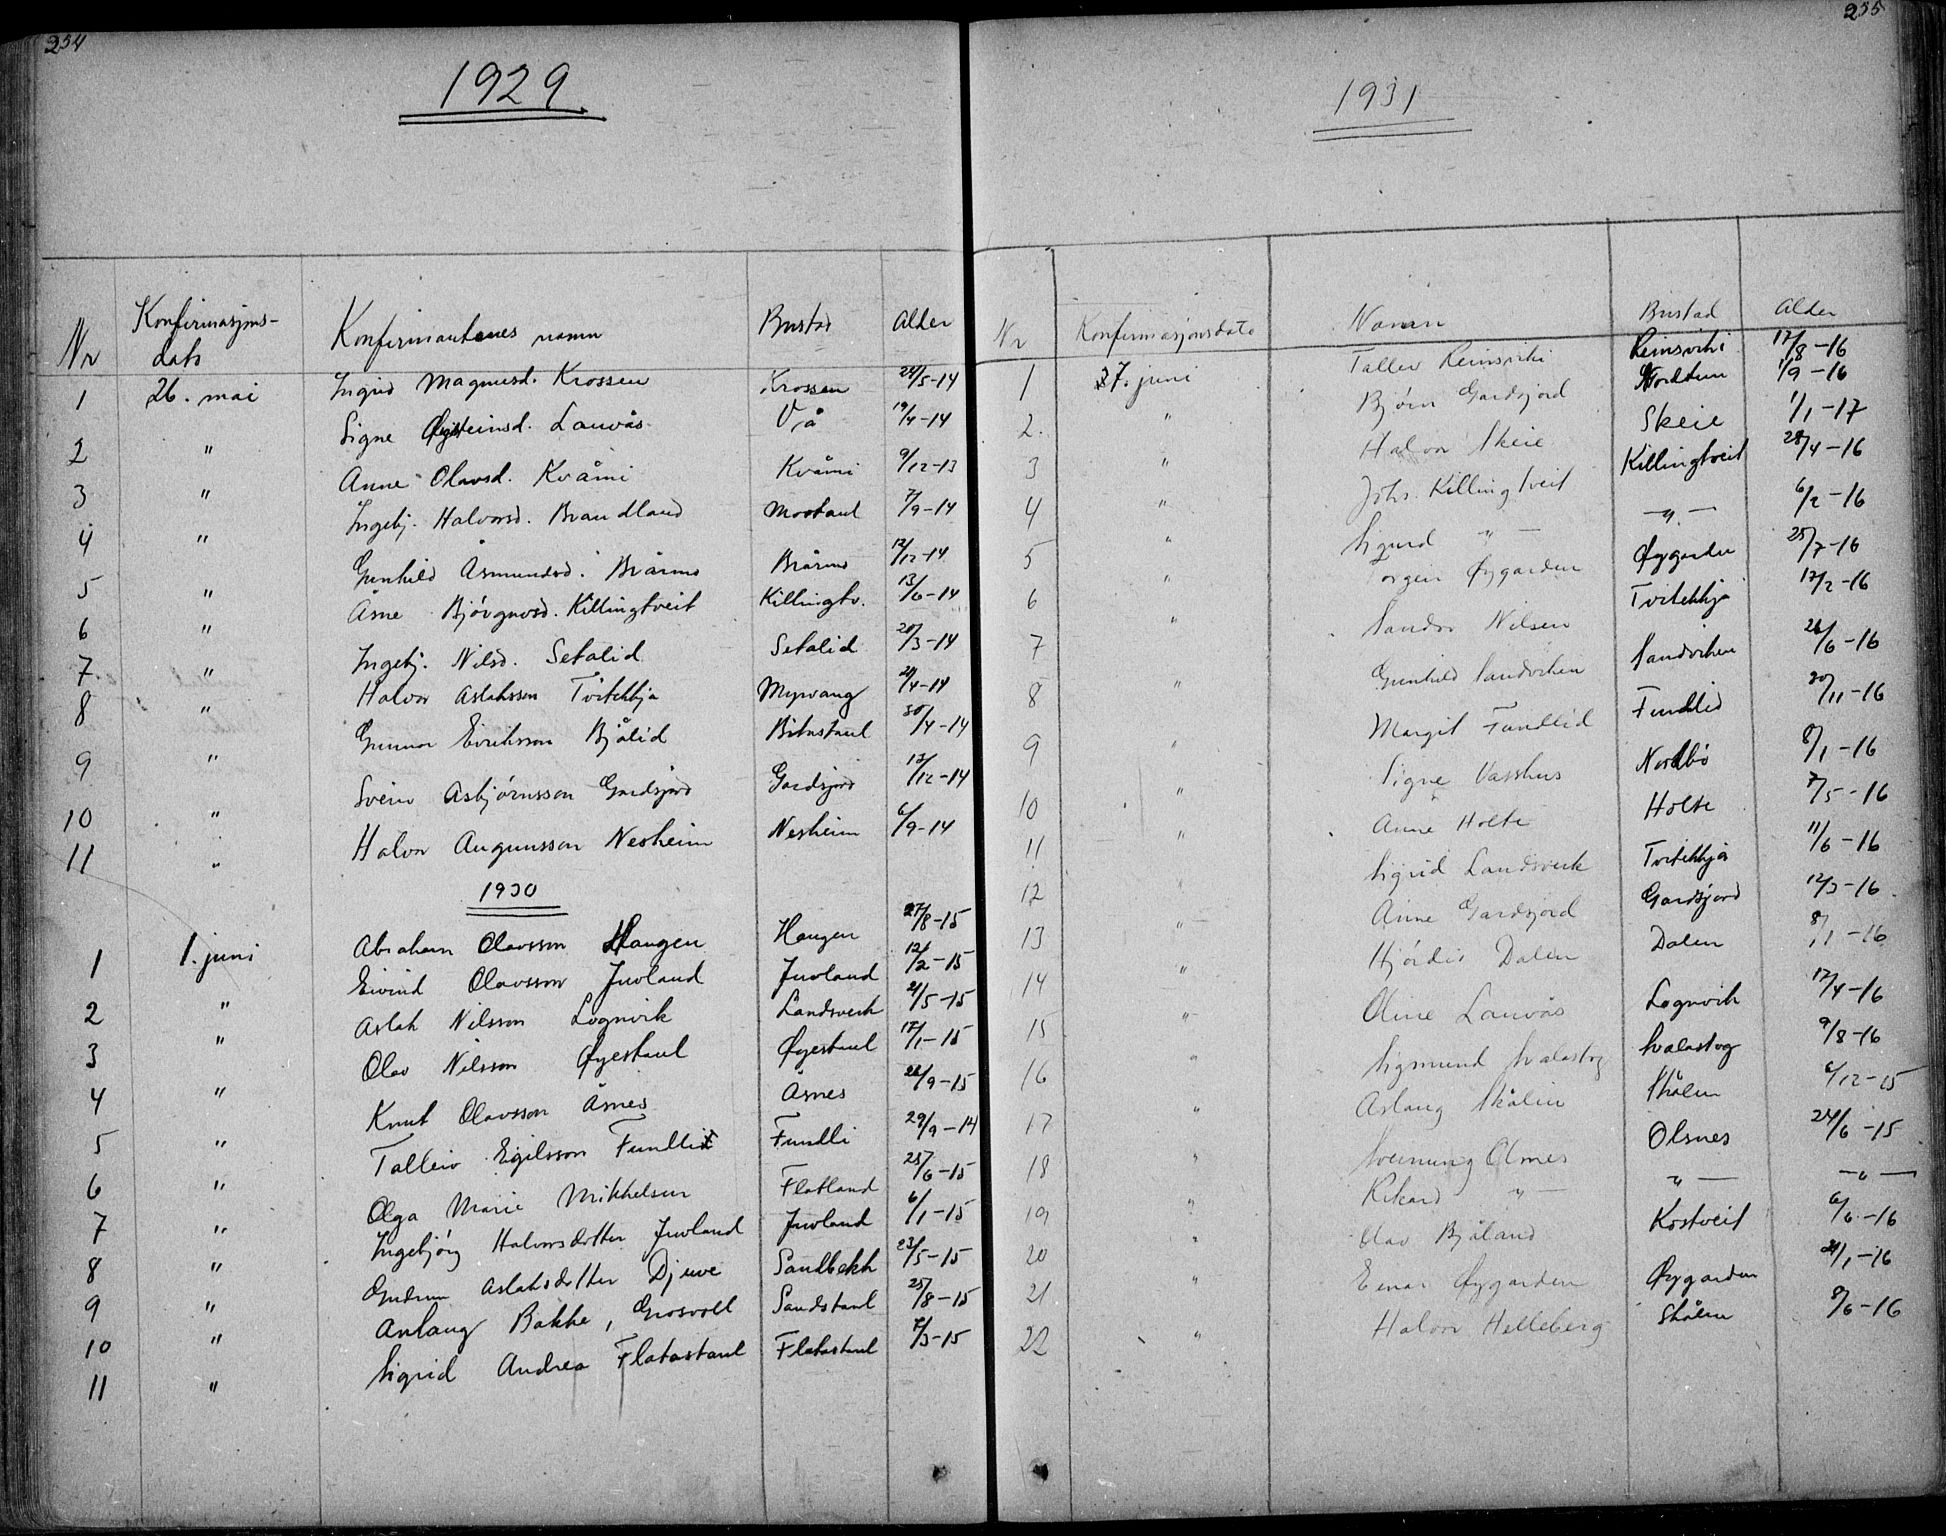 254
1929
Nr Konfirmasjons-dato Konfirmantenes namn Bustad Alder
1 26. mai Ingrid Magnusd. Krossen Krossen 24/5-14
2 " Signe Øysteinsd. Lauvås Vå 19/4-14
3 " Anne Olavsd. Kvåmi Kvåmi 9/12-13
4 " Ingebj. Halvorsd. Brandland Mostaul 7/9-14
5 " Gunhild Åsmundsd. Bråmo Bråmo 12/12-14
6 " Åsne Bjørgovsd. Killingtveit Killingtv. 13/6-14
7 " Ingebj. Nilsd. Setalid Setalid 20/3-14
8 " Halvor Aslaksson Tvitekkja Myrvang 24/4-14
9 " Gunnar Eiriksson Bjålid Bitustaul 30/4-14
10 " Svein Asbjørnsson Gardsjord Gardsjord 12/12-14
11 " Halvor Augunsson Nesheim Nesheim 6/9-14
1930
1 1. juni Abraham Olavsson Haugen Haugen 27/8-15
2 " Eivind Olavsson Juvland Juvland 12/2-15
3 " Aslak Nilsson Lognvik Landsverk 21/5-15
4 " Olav Nilsson Øyestaul Øyestaul 17/1-15
5 " Knut Olavsson Åsnes Åsnes 26/9-15
6 " Talleiv Egilsson Fundli Fundli 29/9-14
7 " Olga Marie Mikkelsen Flatland 25/6-15
8 " Ingebjørg Halvorsdotter Juvland Juvland 6/1-15
9 " Gudrun Aslaksdotter Djuve Sandbekk 23/5-15
10 " Anlaug Bakke, Grosvoll Sandstaul 25/8-15
11 " Sigrid Andrea Flatastaul Flatastaul 7/3-15
255
1931
Nr Konfirmasjonsdato Namn Bustad Alder
1 27. juni Tallev Reinsviki Reinsviki 17/8-16
2. " Bjørn Gardsjord Nordtun 1/9-16
3 " Halvor Skeie Skeie 1/1-17
4 " Johs. Killingtveit Killingtveit 28/4-16
5 " Sigurd — " — — " — 6/2-16
6 " Torgeir Øygarden Øygarden 25/7-16
7 " Sandor Nilsen Tvitekkja 12/2-16
8 " Gunhild Sandviken Sandviken 26/6-16
9 " Margit Fundlid Fundlid 20/11-16
10 " Signe Vasshus Nordbø 8/1-16
11 " Anne Holte Holte 7/5-16
12 " Sigrid Landsverk Tvitekkja 11/6-16
13 " Anne Gardsjord Gardsjord 12/3-16
14 " Hjørdis Dalen Dalen 8/11-16
15 " Oline Lauvås Lognvik 17/4-16
16 " Sigmund Svalastog Svalastog 9/8-16
17 " Aslaug Skålin Skålin 6/12-15
18 " Sveinung Olsnes Olsnes 24/6-15
19 " Rikard — " — — " — — " —
20 " Olav Bjåland Kostveit 6/6-16
21 " Einar Øygarden Øygarden 21/1-16
22 " Halvor Helleberg Skålin 8/6-16